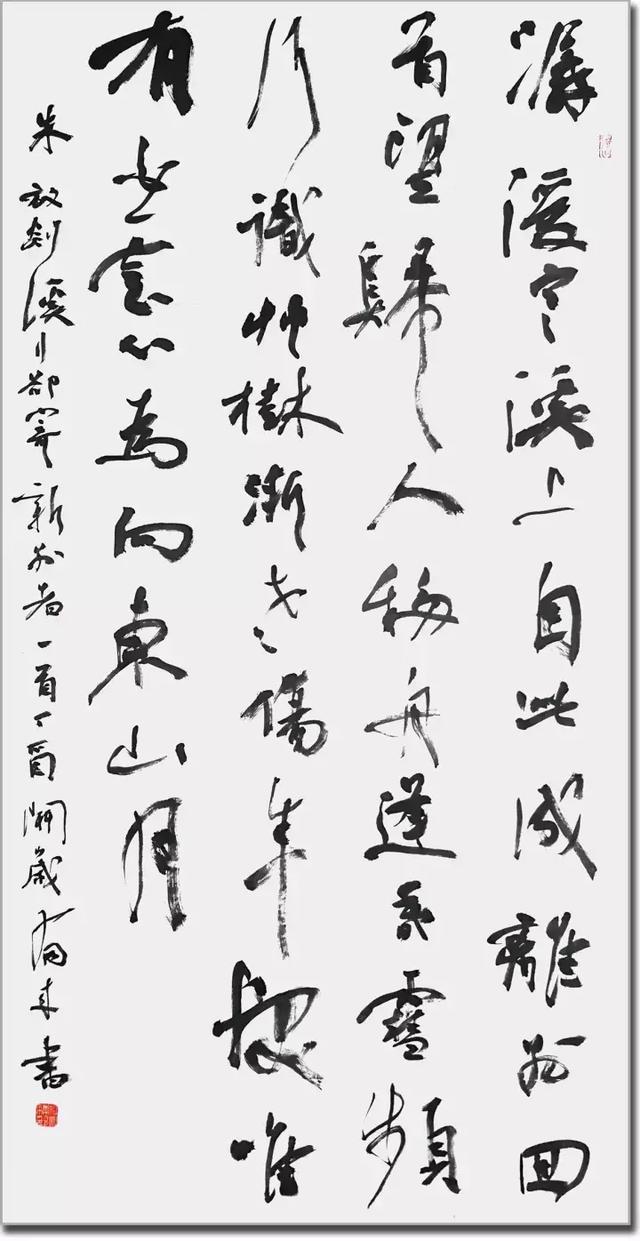 潺湲寒溪上自此成離別回
首望歸人移舟逢暮雪頻
行識艸樹漸老傷年髮唯
有白雲心為向東山月
朱放剡溪行卻寄新別者一首丁酉開歲來書